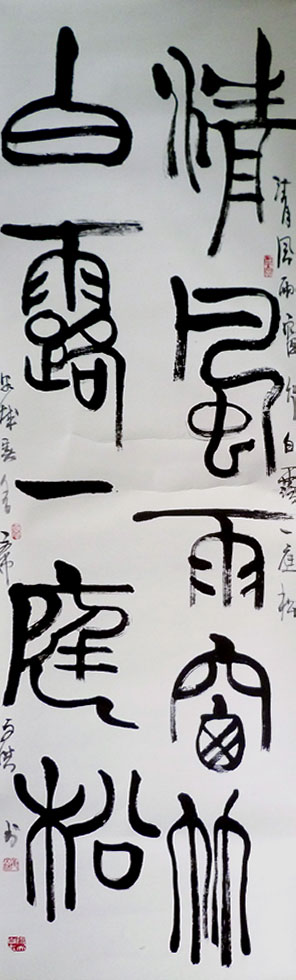 清風兩窗竹白露一庭松
清風兩窗竹
白露一庭松